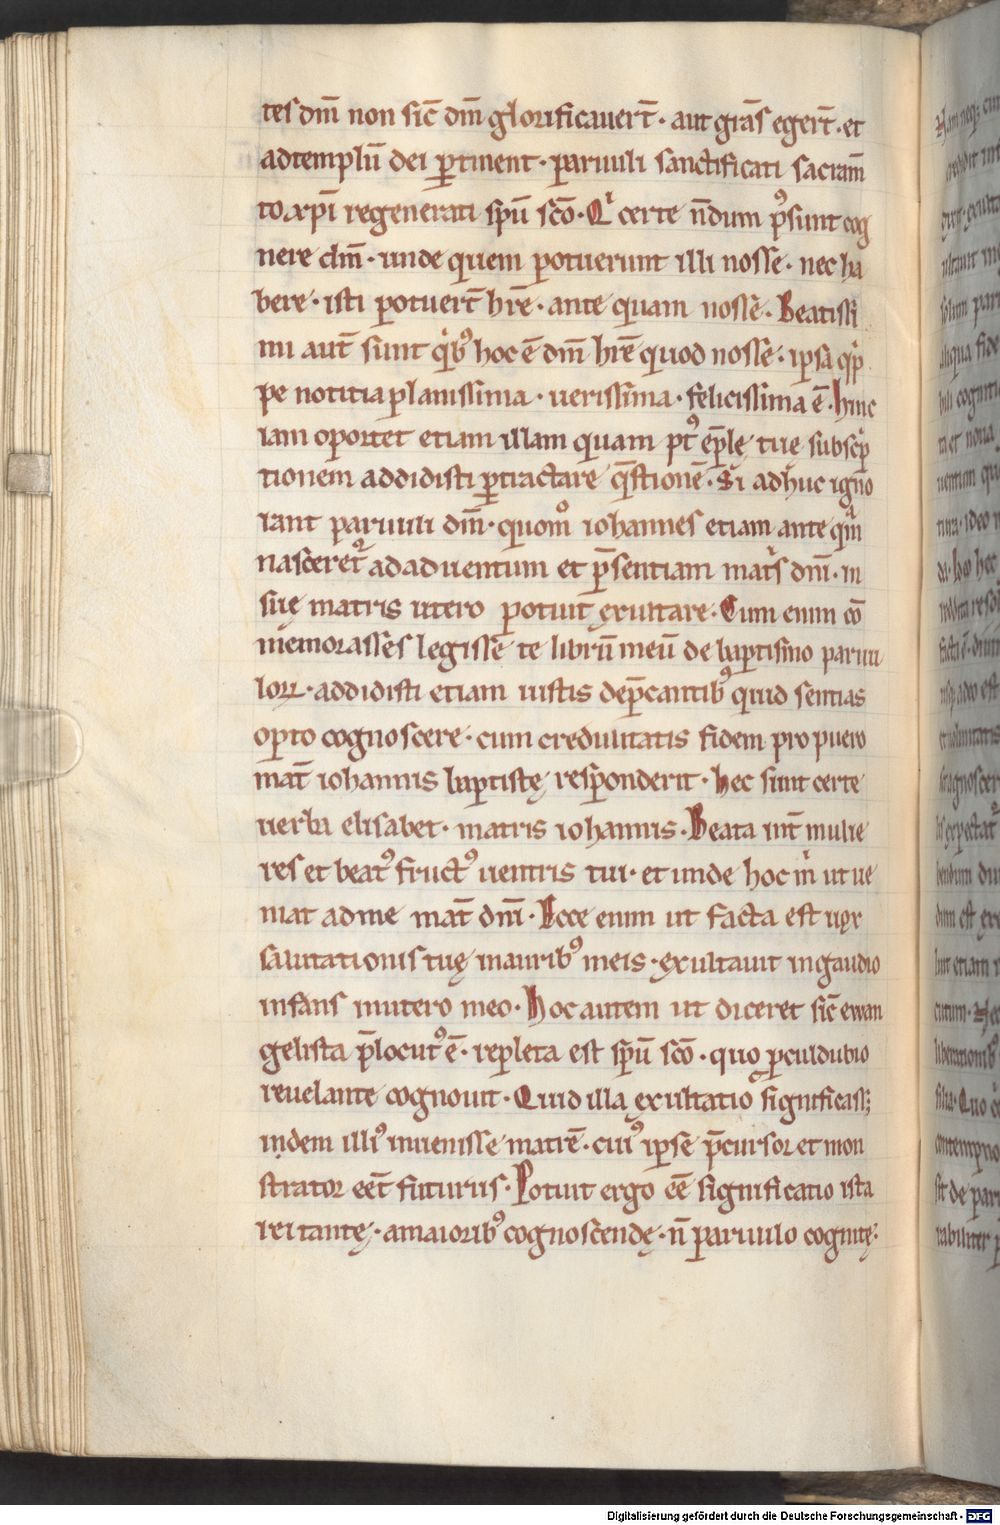 tes dm̄ non sic̄ dm̄ glorificauer̄t · aut grās eger̄t · et
ad templū dei p̱tinent · paruuli sanctificati sacram̄
to xp̄i regenerati spū scō · Qⁱ certe n̄dum p̱ꝰsunt cog
nere dm̄ · unde quem potuerunt illi nosse · nec ha
bere · isti potuer̄t hr̄e · ante quam nosse · Beatissi
mi aut̄ sunt qⁱbꝰ hoc ē dm̄ hr̄e quod nosse · ipsa qⁱp
pe notitia planissima · uerissima · felicissima ē · Hinc
iam oportet etiam illam quam pꝰt ep̄lę tuę subscⁱp
tionem addidisti p̱tractare q̄stionē · Si adhuc igno
rant paruuli dm̄ · quomᵒ iohannes etiam ante qᵃm
nasceret᷑ ad aduentum et p̄sentiam matⁱs dn̄i · in
suę matris utero potuit exultare · Cum enim cō
memorasses legisse te librū meū de baptismo paruu
loꝝ · addidisti etiam iustis dep̄cantibꝰ quid sentias
opto cognoscere · cum credulitatis fidem pro puero
mat̄ iohannis baptistę responderit · hec sunt certe
uerba elisabet · matris iohannis · Beata int̄ mulie
res et beatꝰ fructꝰ uentris tui · et unde hoc mⁱ ut ue
niat ad me mat̄ dn̄i · Ecce enim ut facta est uox
salutationis tuę in auribꝰ meis · exultauit in gaudio
infans in utero meo · Hoc autem ut diceret sic̄ ewan
gelista p̄locutꝰ ē · repleta est spū scō · quo p̱culdubio
reuelante cognouit · Quid illa exultatio significass;
indem illiꝰ inuenisse matrē · cuiꝰ ipse p̄cursor et mon
strator eēt futurus · Potuit ergo eē significatio ista
rei tantę · a maioribꝰ cognoscendę · n̄ paruulo cognitę ·
Digitalisierung gefördert durch die Deutsche Forschungsgemeinschaft - DFG